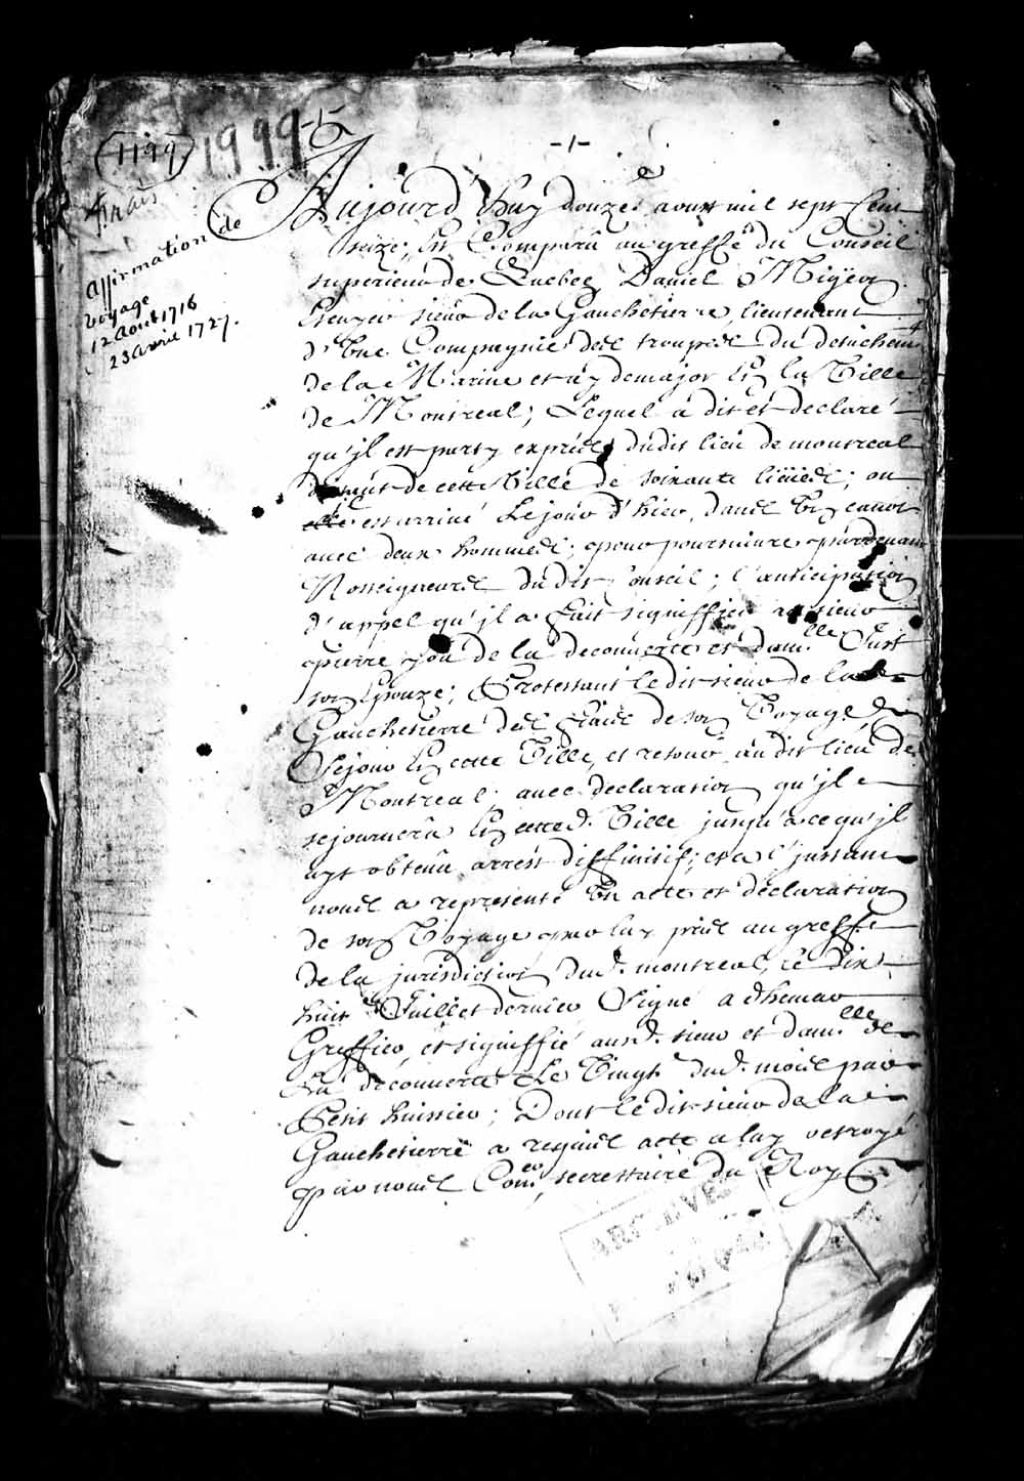 1199
1999-5
-1-
frais
affirmation de
voyage
12 aout 1716
23 avril 1727.
Aujourd'huy douze aoust mil sept Cent
seize, Est Comparu au greffe du Conseil
superieur de Quebec Daniel Migeon
Escuyer sieur de la Gauchetierre, lieutenant
d'Une Compagnie des troupes du detachemt
de la Marine et ay demajor En la Ville
de Montreal; Lequel a dit et declaré
qu'jl est party exprés dudit lieu de montreal
distant de cette Ville de soixante lieües; ou
est arrivé Le jour d'hier, dans Un canot
avec deux hommes, pour poursuivre pardevant
Nosseigneurs dudit Conseil; l'anticipation
d'appel qu'jl a fait signiffier au sieur
pierre you de la decouverte et damlle Just
son Epouze; Protestant ledit sieur de la
Gauchetierre des fraix de son Voyage
sejour En cette Ville, et retour audit lieu de
Montreal; avec declaration qu'jl
sejournera En cetted. Ville jusqu'a ce qu'jl
ayt obtenu arrest diffinitif; et a l'jnstant
nous a representé Un acte et declaration
de son Voyage par luy pris au greffe
de la jurisdiction dud. montreal, le dix
huit Juillet dernier Signé adhemar
Greffier, et signiffié ausd. sieur et damlle de
La decouverte Le Vingt dud. mois par
Petit huissier; Dont ledit sieur de la
Gauchetierre a requis acte a luy octroyé
par nous Coner secretaire du Roy
ARCHIVES